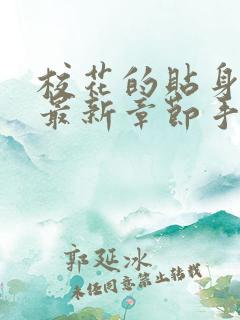 校花的贴身
最新章节手
郭延冰
未经同意禁止转载